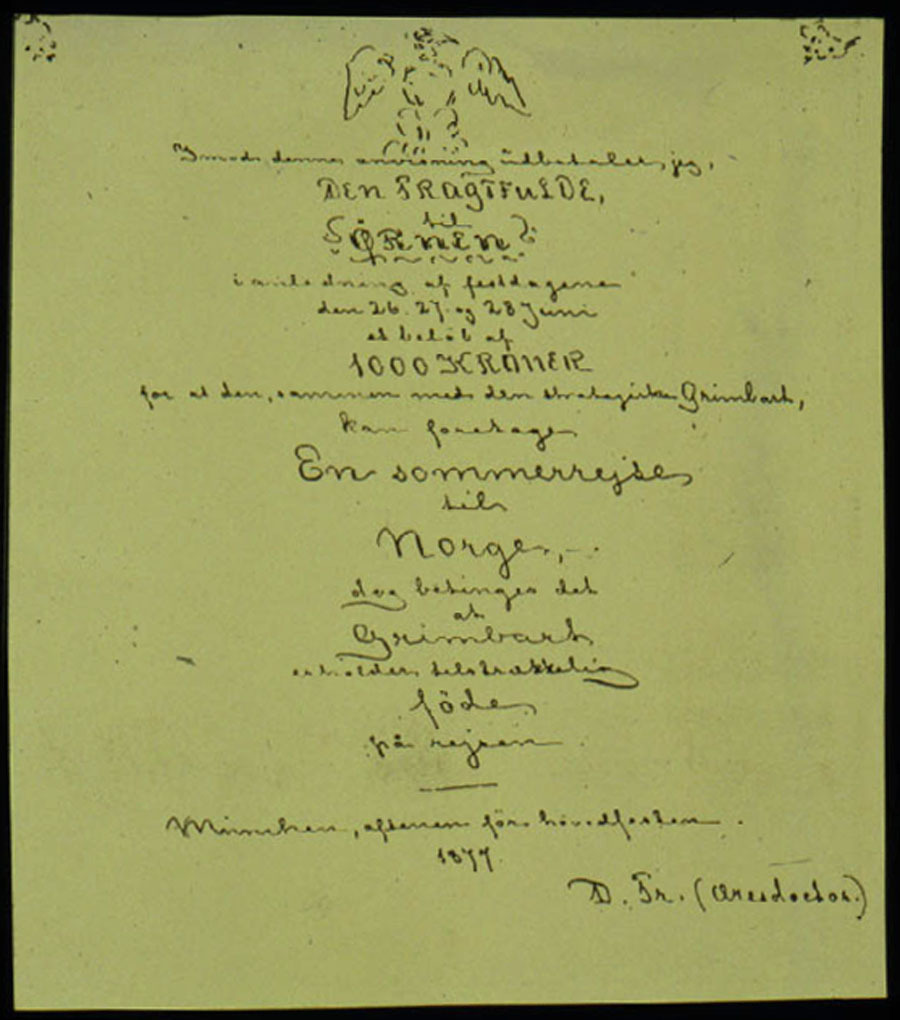 Imod denne anvisning udbetaler jeg,
DEN FRAGTFULDE,
til
ØRNEN
i anledning af festdagene
den 26. 27. og 28 Juni
et beløb af
1000 KRONER
for at den, sammen med den strategiske Grimbart,
kan foretage
En sommerrejse
til
Norge,-.
dog betinges det
at
Grimbart
erholder tilstrækkelig
föde
på rejsen.
München, aftenen før hovedfesten.
1877
D. Fr. (Æresdoctor.)